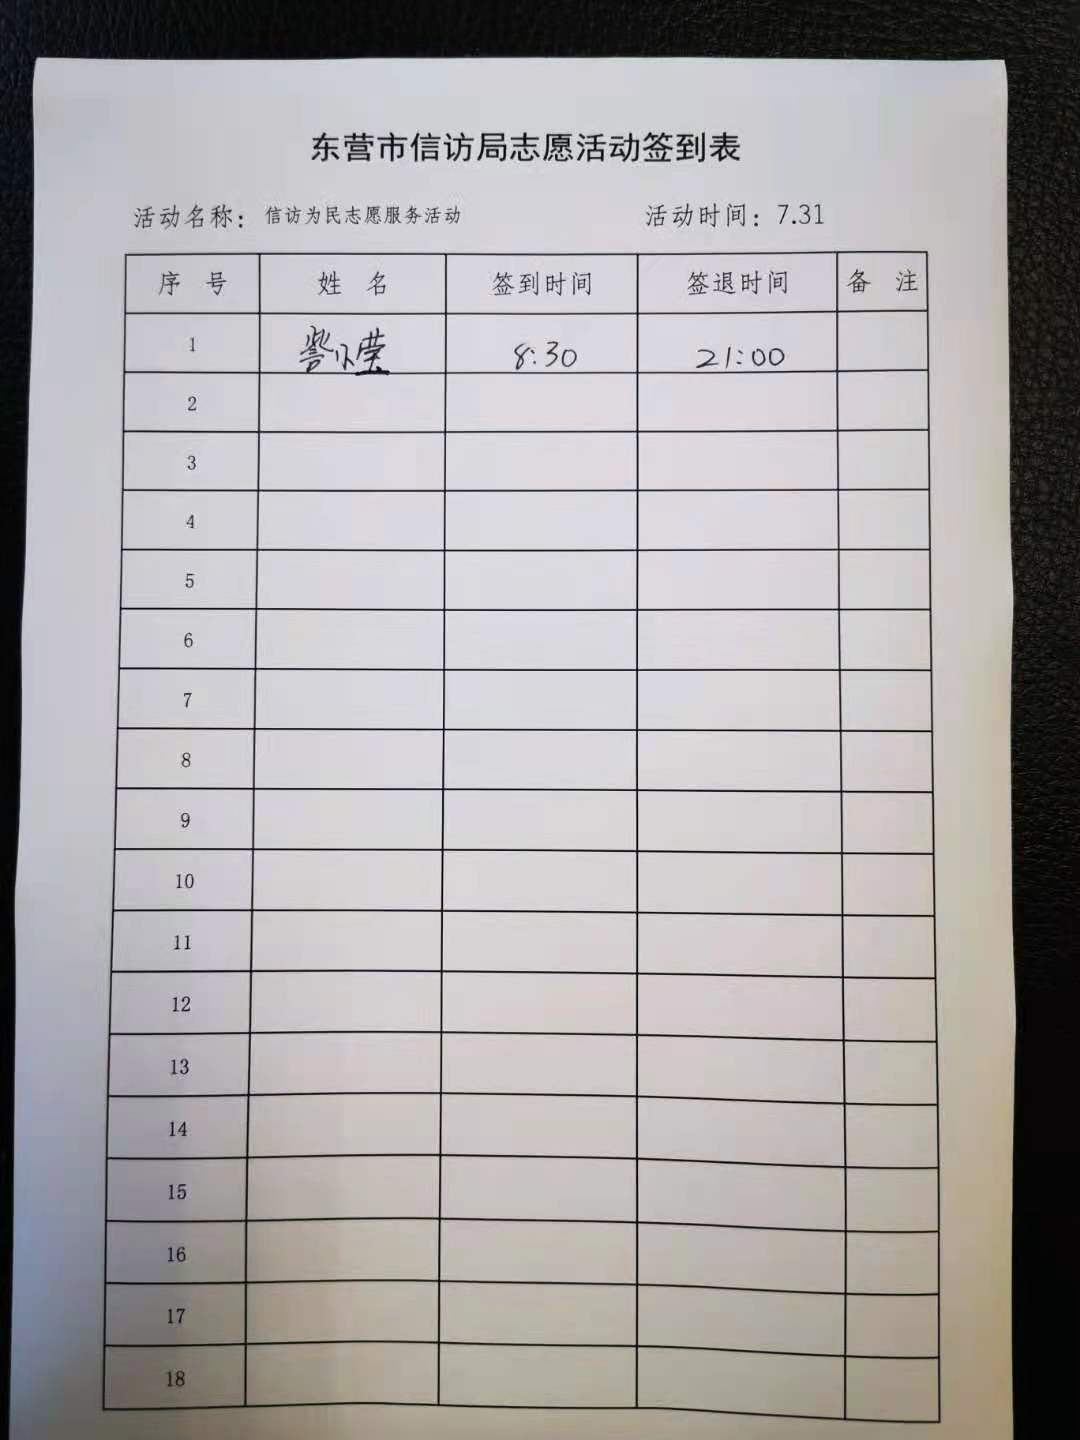 东营市信访局志愿活动签到表
活动名称：信访为民志愿服务活动 活动时间：7.31
序 号 姓 名 签到时间 签退时间 备 注
1 8:30 21:00
2
3
4
5
6
7
8
9
10
11
12
13
14
15
16
17
18